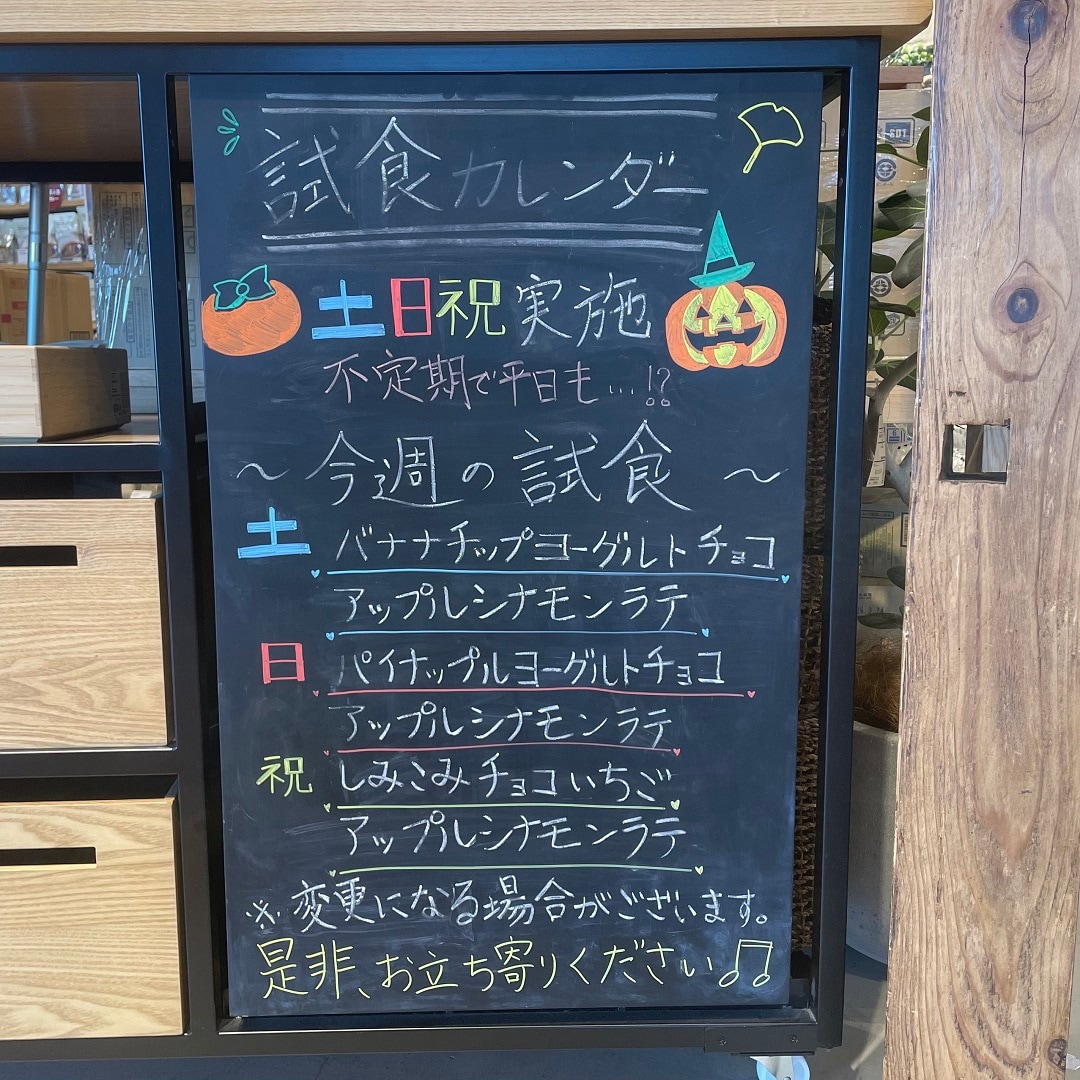 試食カレンダー
土日祝実施
不定期で平日も…!?
～今週の試食～
土 バナナチップヨーグルトチョコ
アップルシナモンラテ
日 パイナップルヨーグルトチョコ
アップルシナモンラテ
祝 しみこみチョコいちご
アップルシナモンラテ
※変更になる場合がございます。
是非、お立ち寄りください♫